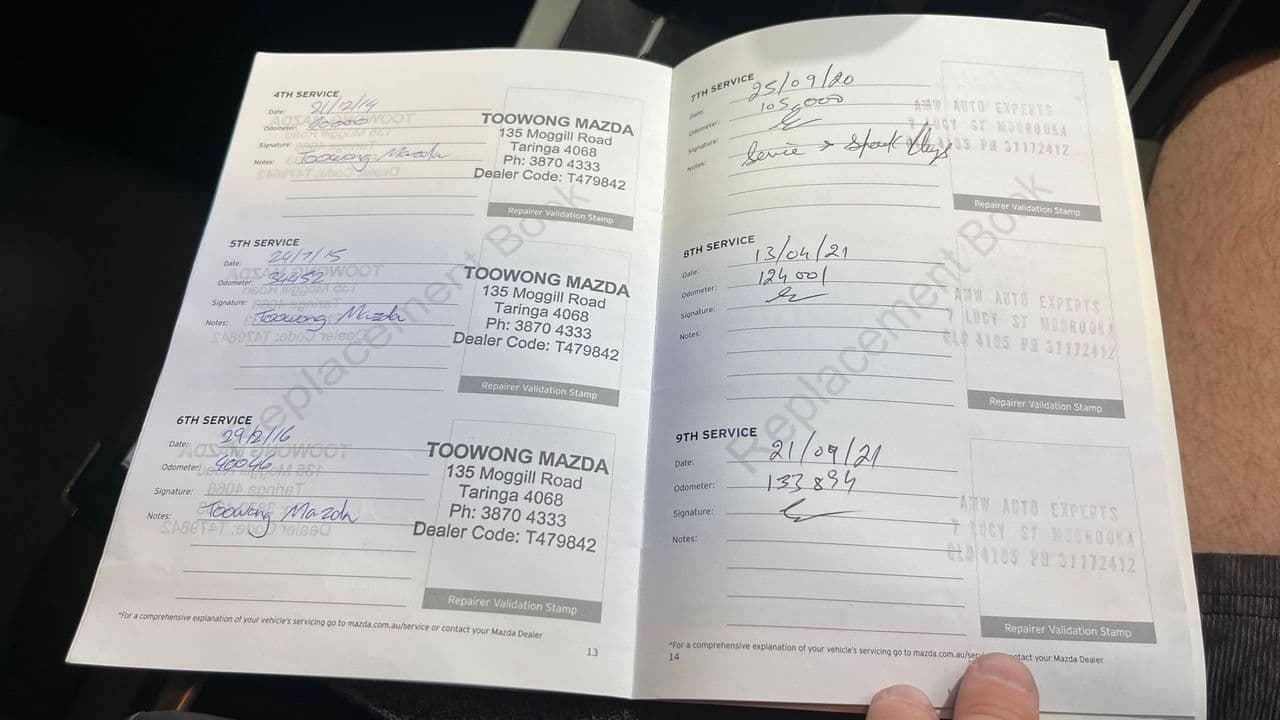 4TH SERVICE
Date: 21/12/14
Odometer:
Signature:
Notes: Toowong Mazda
TOOWONG MAZDA
135 Moggill Road
Taringa 4068
Ph: 3870 4333
Dealer Code: T479842
Repairer Validation Stamp
5TH SERVICE
Date: 24/7/15
Odometer: 34452
Signature:
Notes: Toowong Mazda
TOOWONG MAZDA
135 Moggill Road
Taringa 4068
Ph: 3870 4333
Dealer Code: T479842
Repairer Validation Stamp
6TH SERVICE
Date: 29/2/16
Odometer: 40046
Signature:
Notes: Toowong Mazda
TOOWONG MAZDA
135 Moggill Road
Taringa 4068
Ph: 3870 4333
Dealer Code: T479842
Repairer Validation Stamp
Replacement Book
*For a comprehensive explanation of your vehicle's servicing go to mazda.com.au/service or contact your Mazda Dealer
13
7TH SERVICE
Date: 25/09/20
Odometer: 105,000
Signature:
Notes:
AUTO EXPERTS
7 LUCY ST MOOROOKA
4105 PH 31172412
Repairer Validation Stamp
8TH SERVICE
Date: 13/04/21
Odometer: 124001
Signature:
Notes:
AUTO EXPERTS
7 LUCY ST MOOROOKA
QLD 4105 PH 31172412
Repairer Validation Stamp
9TH SERVICE
Date: 21/09/21
Odometer: 133894
Signature:
Notes:
AUTO EXPERTS
7 LUCY ST MOOROOKA
QLD 4105 PH 31172412
Repairer Validation Stamp
Replacement Book
*For a comprehensive explanation of your vehicle's servicing go to mazda.com.au/serv contact your Mazda Dealer
14